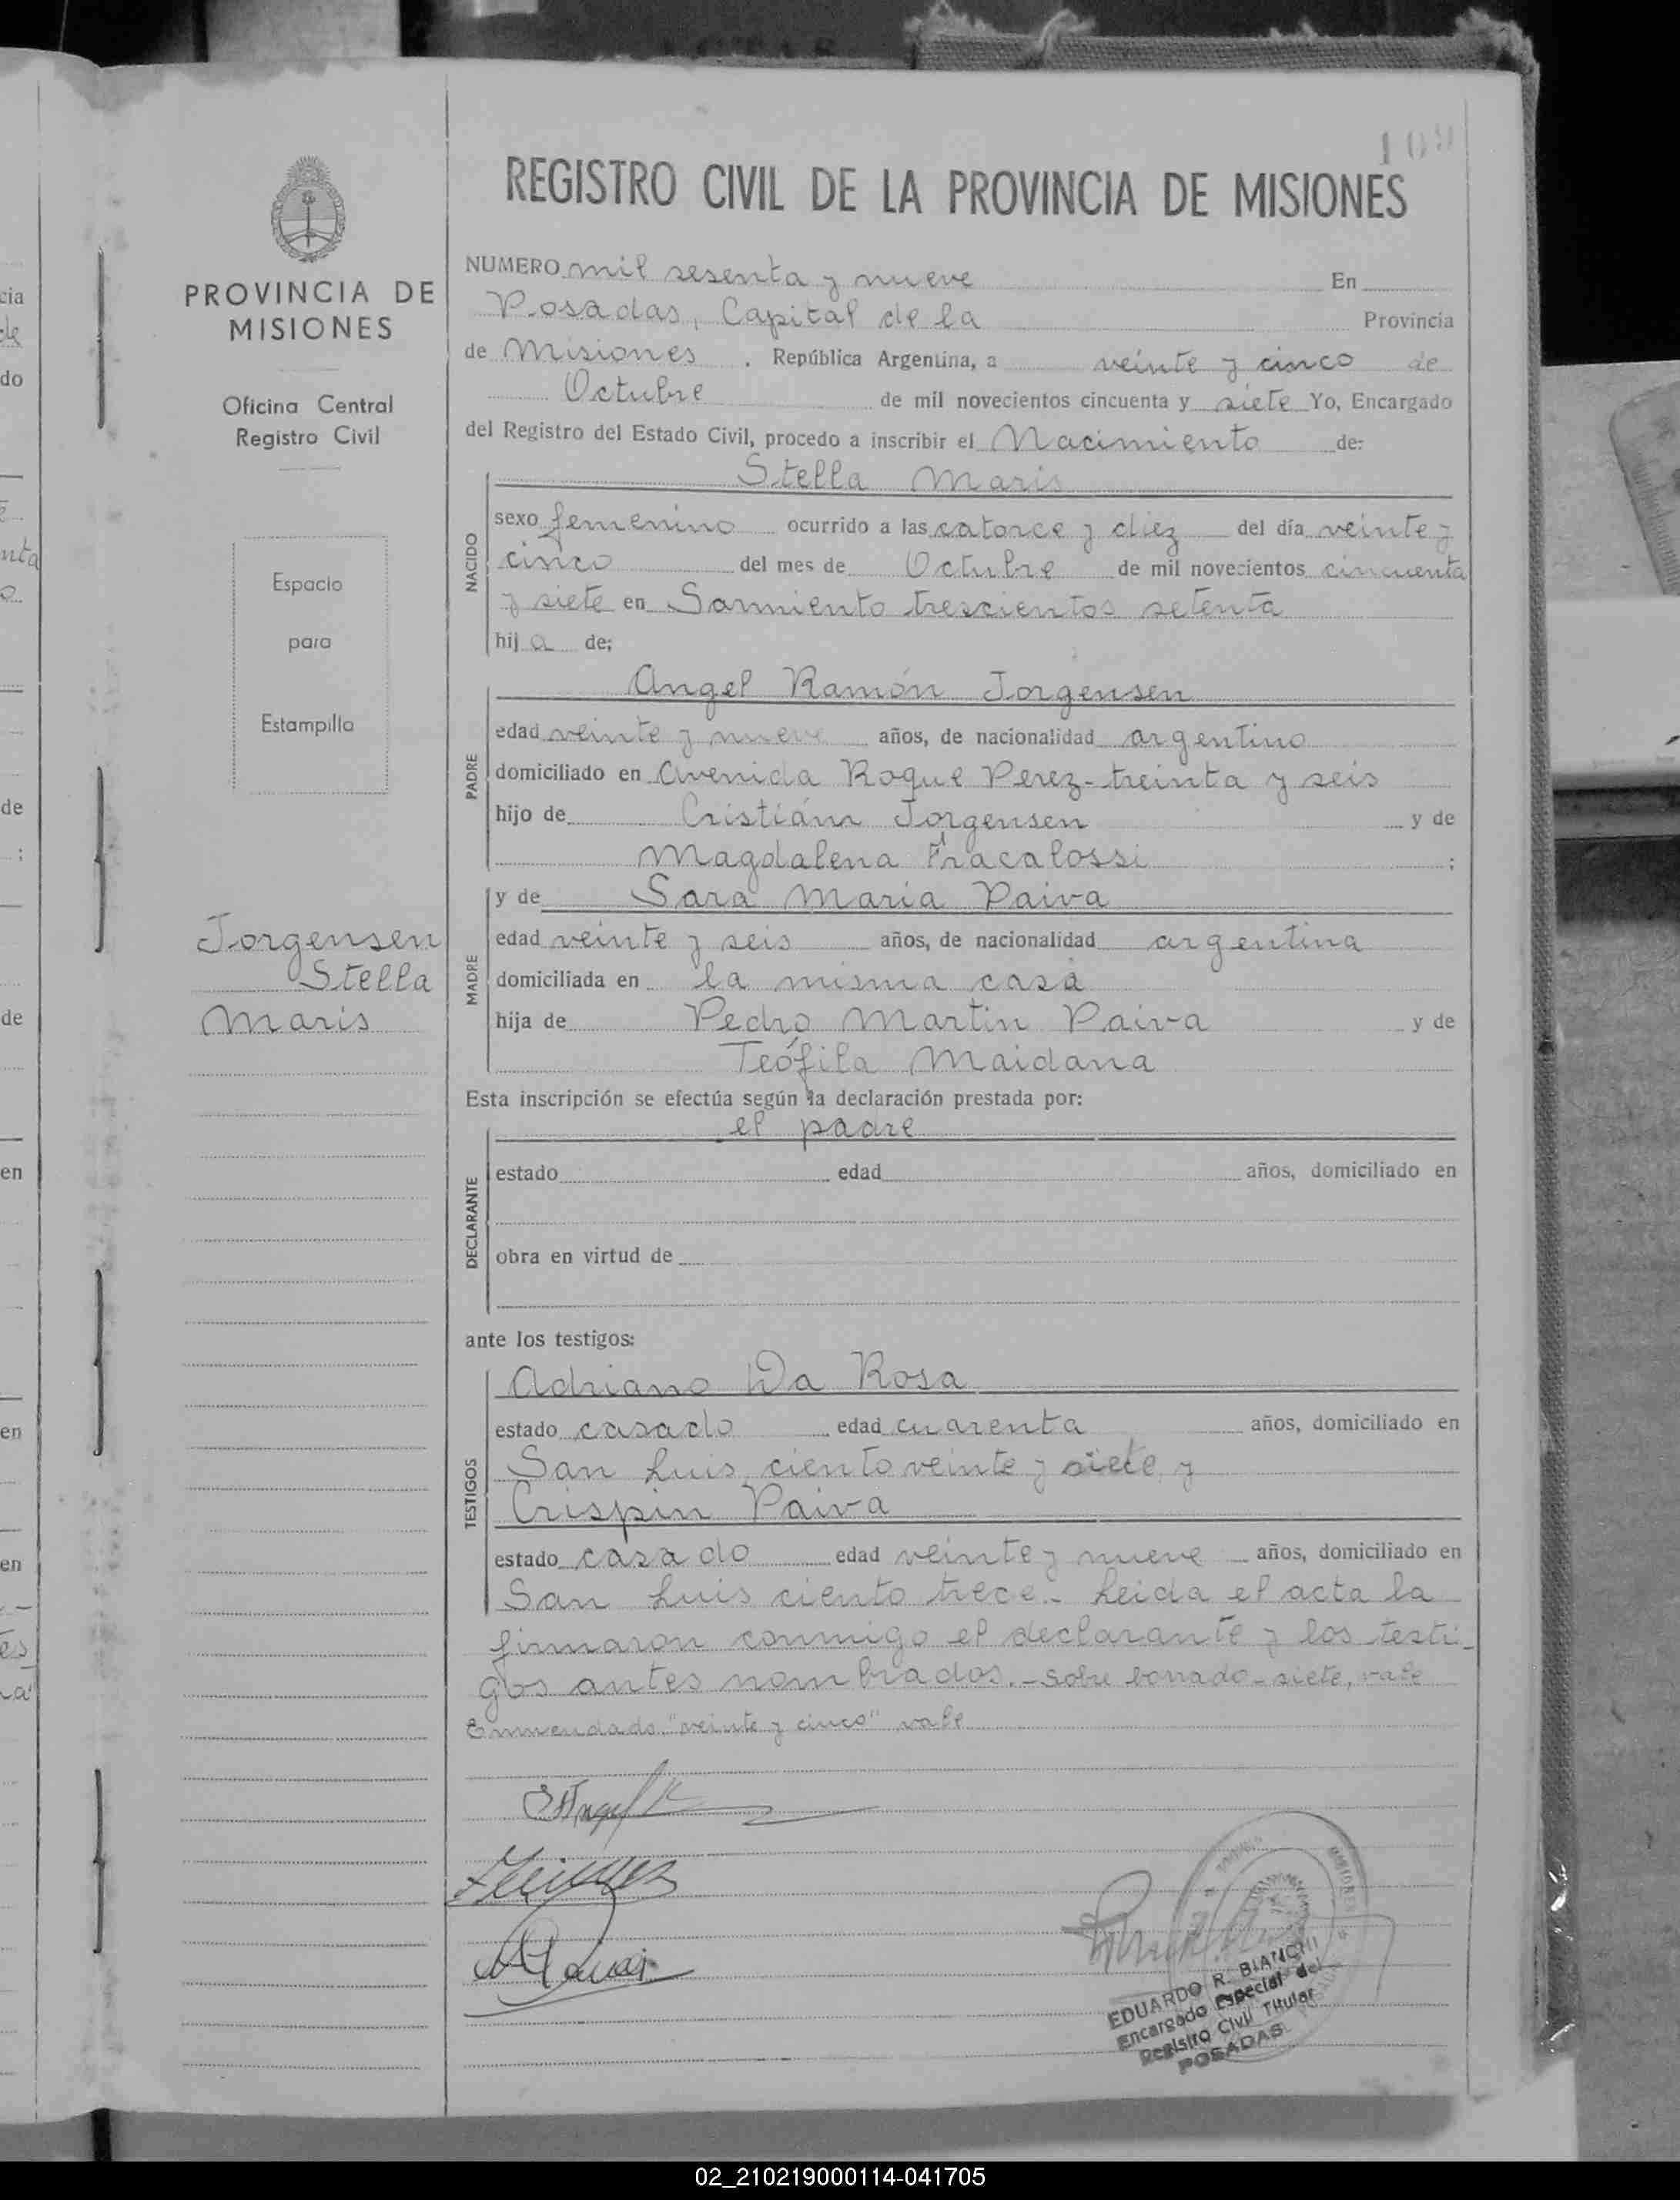 109
REGISTRO CIVIL DE LA PROVINCIA DE MISIONES
PROVINCIA DE
MISIONES
Oficina Central
Registro Civil
Espacio
para
Estampilla
Jorgensen
Stella
Maris
NUMERO mil sesenta y nueve En
Posadas, Capital de la Provincia
de Misiones . República Argentina, a veinte y cinco de
Octubre de mil novecientos cincuenta y siete Yo, Encargado
del Registro del Estado Civil, procedo a inscribir el Nacimiento de:
Stella Maris
NACIDO
sexo femenino ocurrido a las catorce y diez del día veinte y
cinco del mes de Octubre de mil novecientos cincuenta
y siete en Sarmiento trescientos setenta
hij a de;
Angel Ramón Jorgensen
PADRE
edad veinte y nueve años, de nacionalidad argentino
domiciliado en Avenida Roque Perez - treinta y seis
hijo de Cristiám Jorgensen y de
Magdalena Fracalossi ;
y de Sara Maria Paiva
MADRE
edad veinte y seis años, de nacionalidad argentina
domiciliada en la misma casa
hija de Pedro Martin Paiva y de
Teófila Maidana
Esta inscripción se efectúa según la declaración prestada por:
el padre
DECLARANTE
estado edad años, domiciliado en
obra en virtud de
ante los testigos:
TESTIGOS
Adriano Da Rosa
estado casado edad cuarenta años, domiciliado en
San Luis ciento veinte y siete y
Crispin Paiva
estado casado edad veinte y nueve años, domiciliado en
San Luis ciento trece.- Leida el acta la
firmaron conmigo el declarante y los testi-
gos antes nombrados.- Sobre borrado - siete, vale
Emmendado "veinte y cinco" vale
EDUARDO R. BIANCHI
Encargado Especial del
Registro Civil Titular
POSADAS
MISIONES
cia
de
do
nta
o
de
;
de
en
en
en
es
02_210219000114-041705